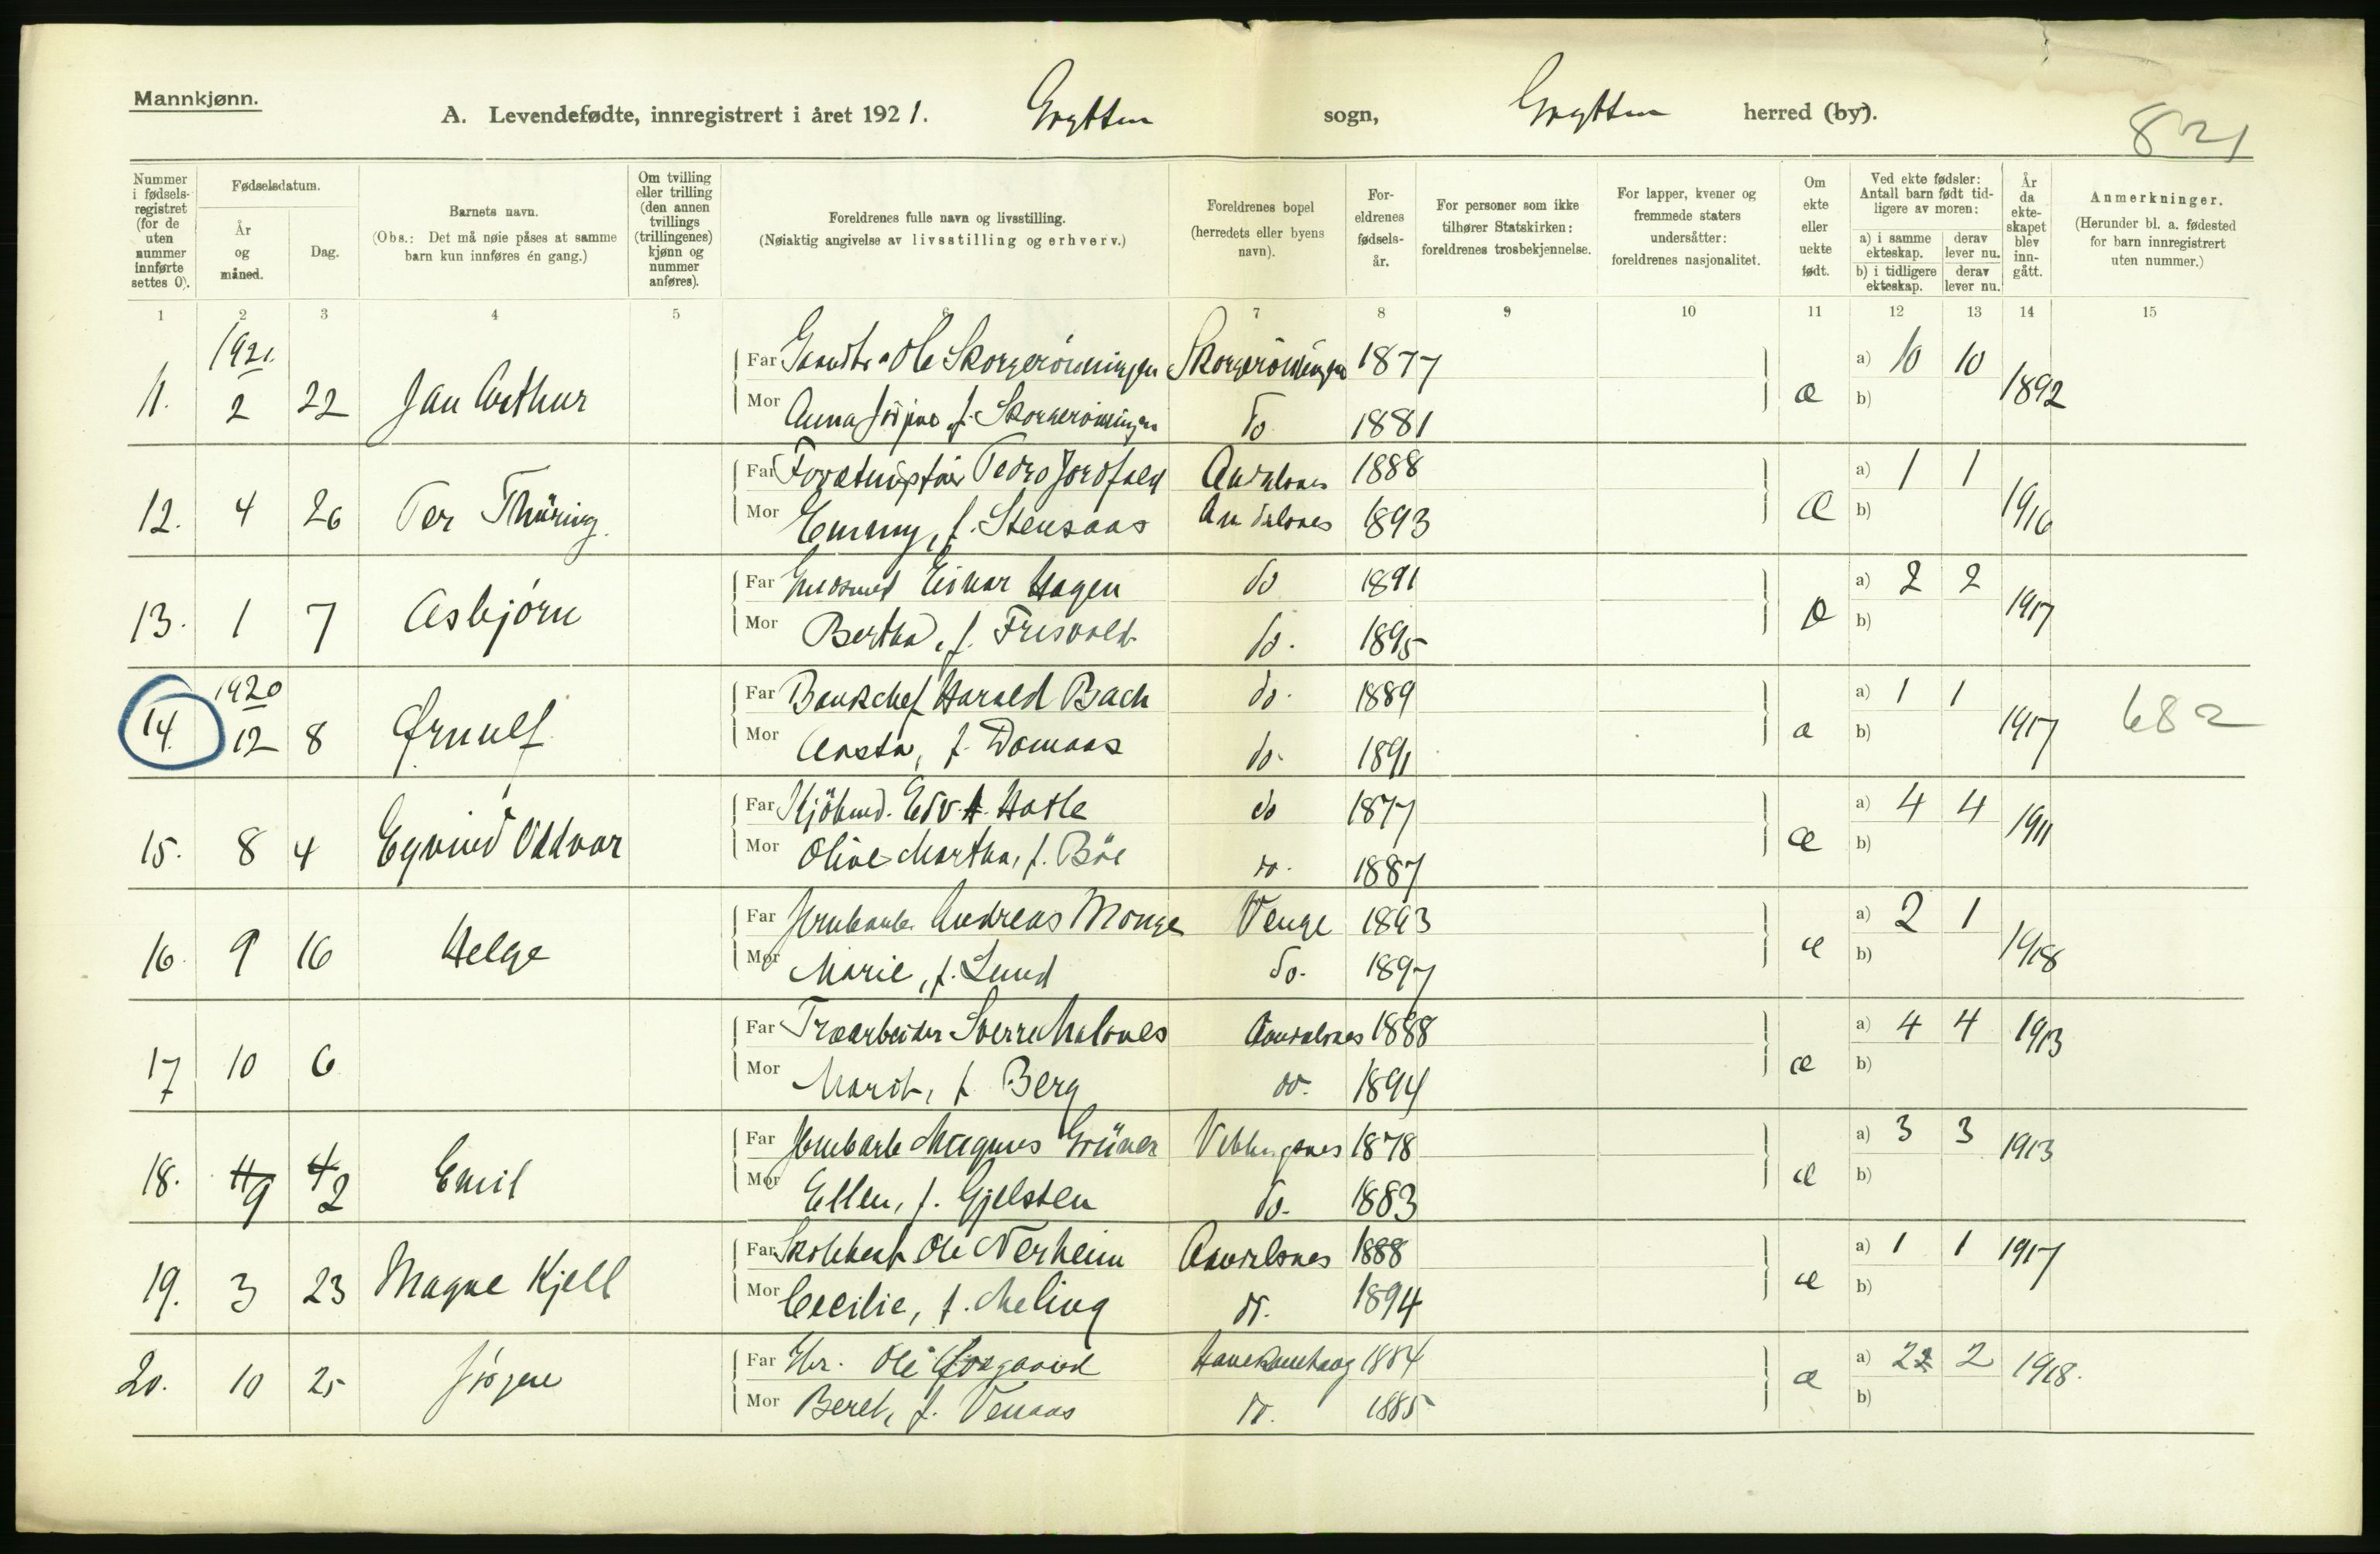 Mannkjønn.
A. Levendefødte, innregistrert i året 1921. Grytten sogn, Grytten herred (by).
821
Nummer i fødselsregistret (for de uten nummer innførte settes 0).
Fødselsdatum.
År og måned.
Dag.
Barnets navn.
(Obs.: Det må nøie påses at samme barn kun innføres én gang.)
Om tvilling eller trilling (den annen tvillings (trillingenes) kjønn og nummer anføres).
Foreldrenes fulle navn og livsstilling.
(Nøiaktig angivelse av livsstilling og erhverv.)
Foreldrenes bopel (herredets eller byens navn).
Foreldrenes fødselsår.
For personer som ikke tilhører Statskirken: foreldrenes trosbekjennelse.
For lapper, kvener og fremmede staters undersåtter: foreldrenes nasjonalitet.
Om ekte eller uekte født.
Ved ekte fødsler: Antall barn født tidligere av moren:
a) i samme ekteskap.
derav lever nu.
b) i tidligere ekteskap.
derav lever nu.
År da ekteskapet blev inngått.
Anmerkninger.
(Herunder bl. a. fødested for barn innregistrert uten nummer.)
1 2 3 4 5 6 7 8 9 10 11 12 13 14 15
1921
Far Ole Skorgerönningen Skorgerönningen 1877 a) 10 10
11. 2 22 Jan Arthur æ 1892
Mor Anna f. Skorgerönningen do 1881 b)
Far Pedro Jordfald Andalsnes 1888 a) 1 1
12. 4 26 Per Thüring. Æ 1916
Mor Emmy, f. Stensaas Andalsnes 1893 b)
Far Guldsmed Einar Hagen do 1891 a) 2 2
13. 1 7 Asbjörn æ 1917
Mor Bertha, f. Frisvold do. 1895 b)
1920
Far Bankchef Harald Bach do. 1889 a) 1 1
14. 12 8 Ørnulf æ 1917 682
Mor Aasta, f. Domaas do. 1891 b)
Far Kjöbmd. Edv. A. Hatle do 1877 a) 4 4
15. 8 4 Eyvind Oddvar æ 1911
Mor Olive Martha, f. Böe do. 1887 b)
Far Jernbarb. Andreas Monge Venge 1893 a) 2 1
16. 9 16 Helge æ 1918
Mor Marie, f. Lund do. 1897 b)
Far Træarbeider Sverre Malones Aandalsnes 1888 a) 4 4
17 10 6 æ 1913
Mor Marit, f. Berg do. 1894 b)
Far Jernbarb Magnus Grüner Veblungsnes 1878 a) 3 3
18. 9 2 Emil æ 1913
Mor Ellen, f. Gjelsten do. 1883 b)
Far Ole Nerheim Aandalsnes 1888 a) 1 1
19. 3 23 Magne Kjell æ 1917
Mor Cecilie, f. Meling do. 1894 b)
Far Hr. Ole 1884 a) 2 2
20. 10 25 Jörgen æ 1918.
Mor Beret, f. Venaas do. 1885 b)